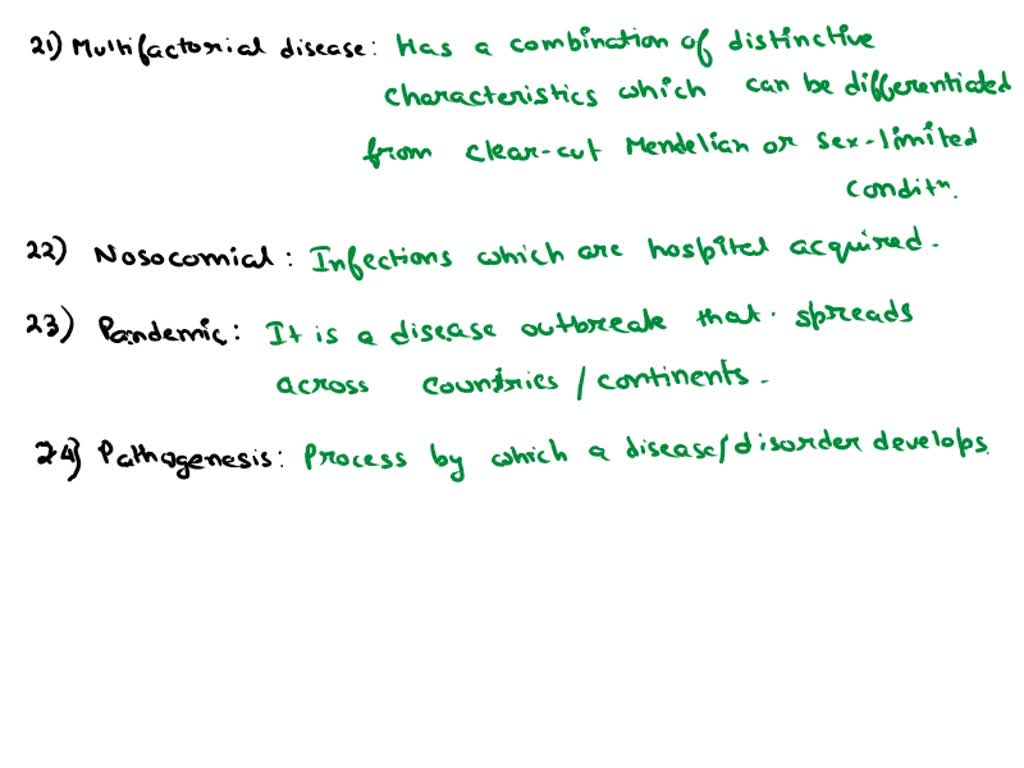 21) Multifactorial disease: Has a combination of distinctive
characteristics which can be differentiated
from clear-cut Mendelian or sex-limited
conditn.
22) Nosocomial: Infections which are hospital acquired.
23) Pandemic: It is a disease outbreak that. spreads
across countries/continents.
24) Pathogenesis: Process by which a disease/disorder develops.